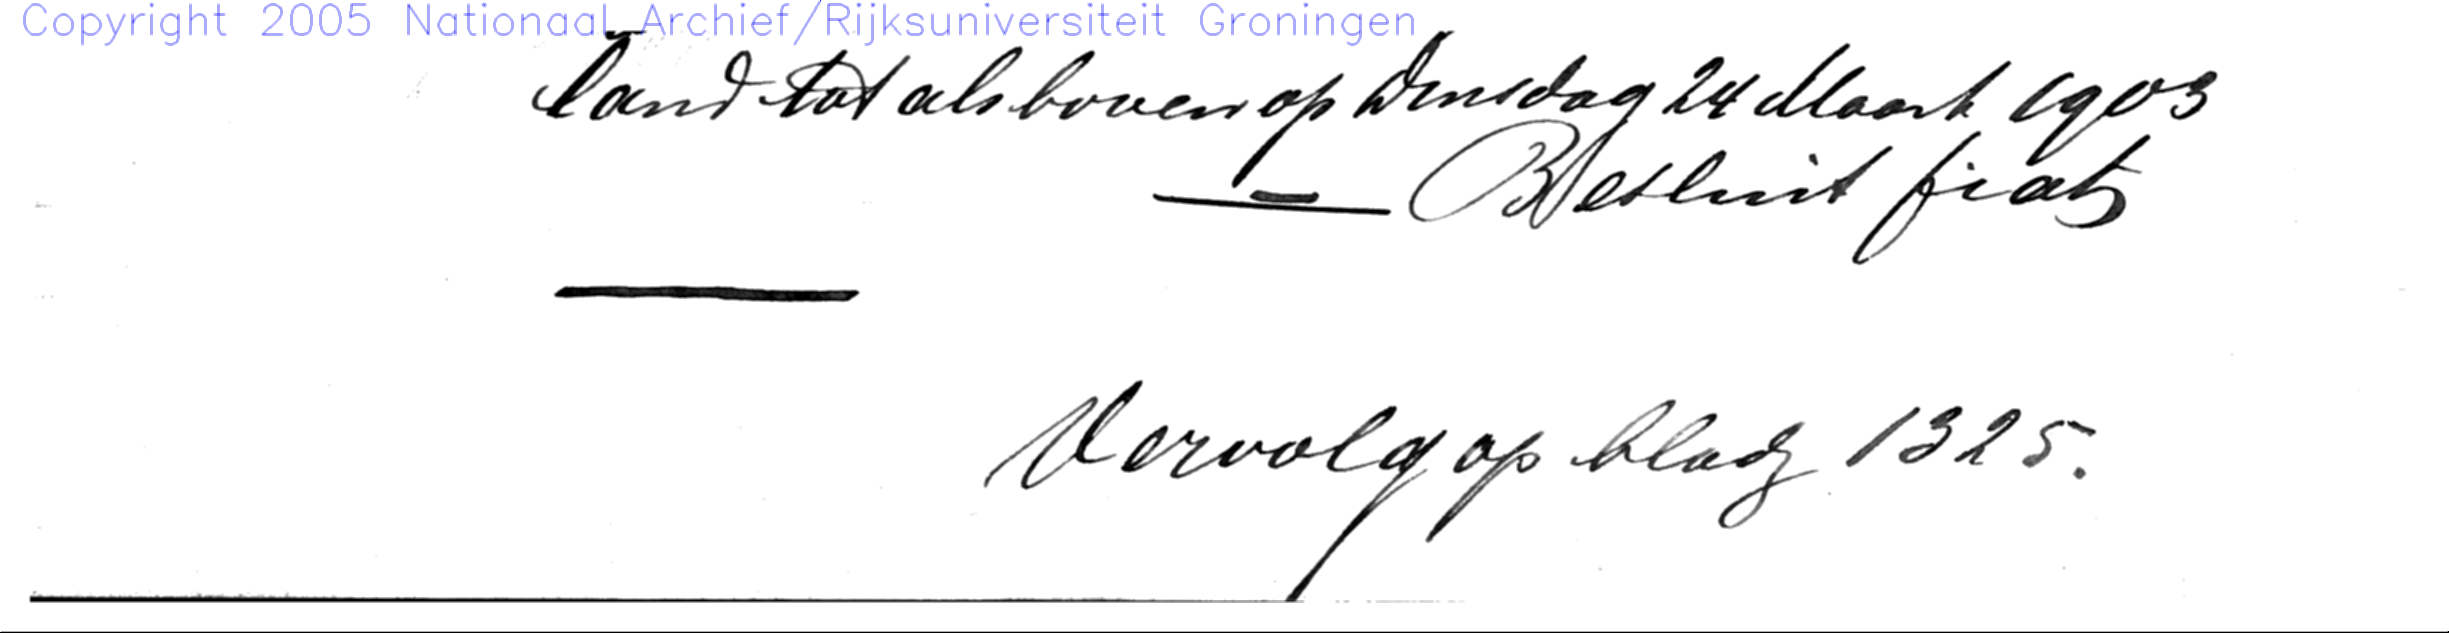 Copyright 2005 Nationaal Archief/Rijksuniversiteit Groningen
land tot als boven op Dinsdag 24 Maart 1903
Besluit fiat
Vervolg op bladz 1325.